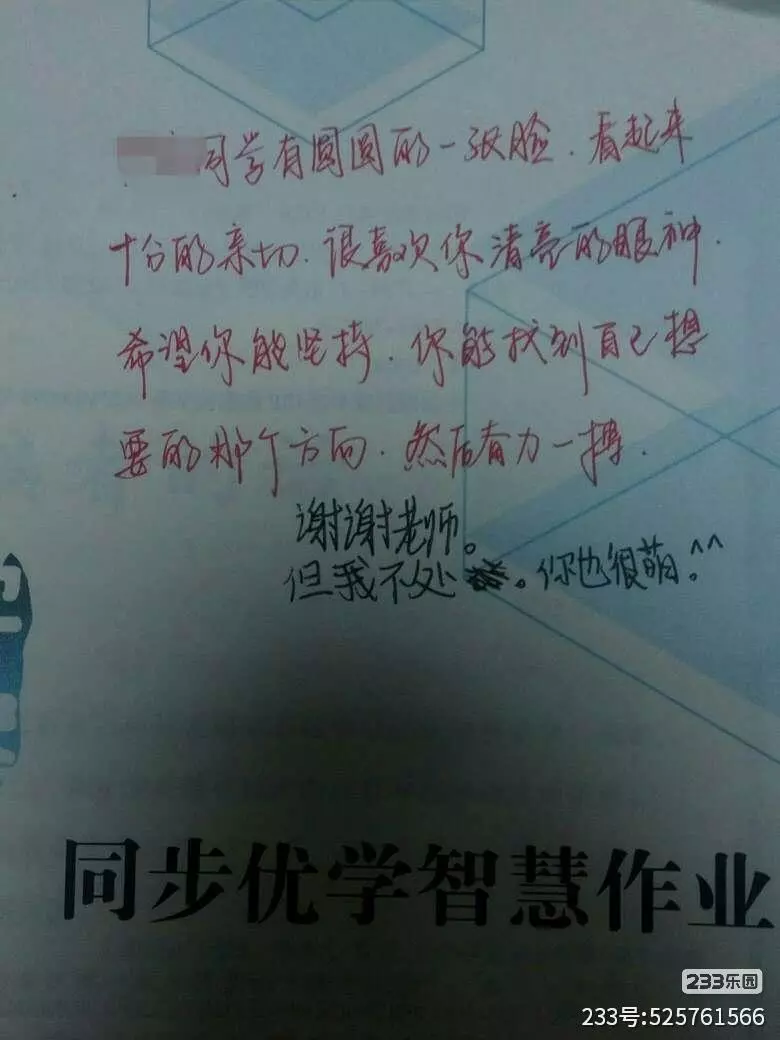 同学有圆圆的一张脸.看起来
十分的亲切.很喜欢你清亮的眼神.
希望你能坚持.你能找到自己想
要的那个方向.然后奋力一搏.
谢谢老师。
但我不处 。你也很萌。^^
同步优学智慧作业
233乐园
233号:525761566